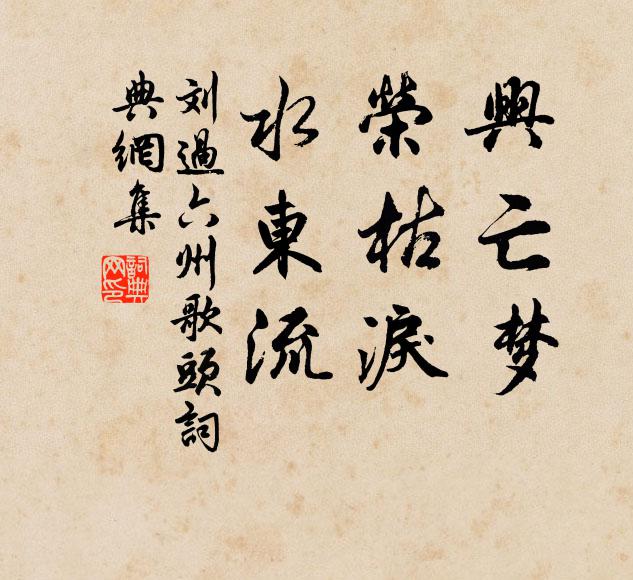 興亡梦
榮枯淚
水東流
刘過六州歌頭詞
典網集
詞典
网印